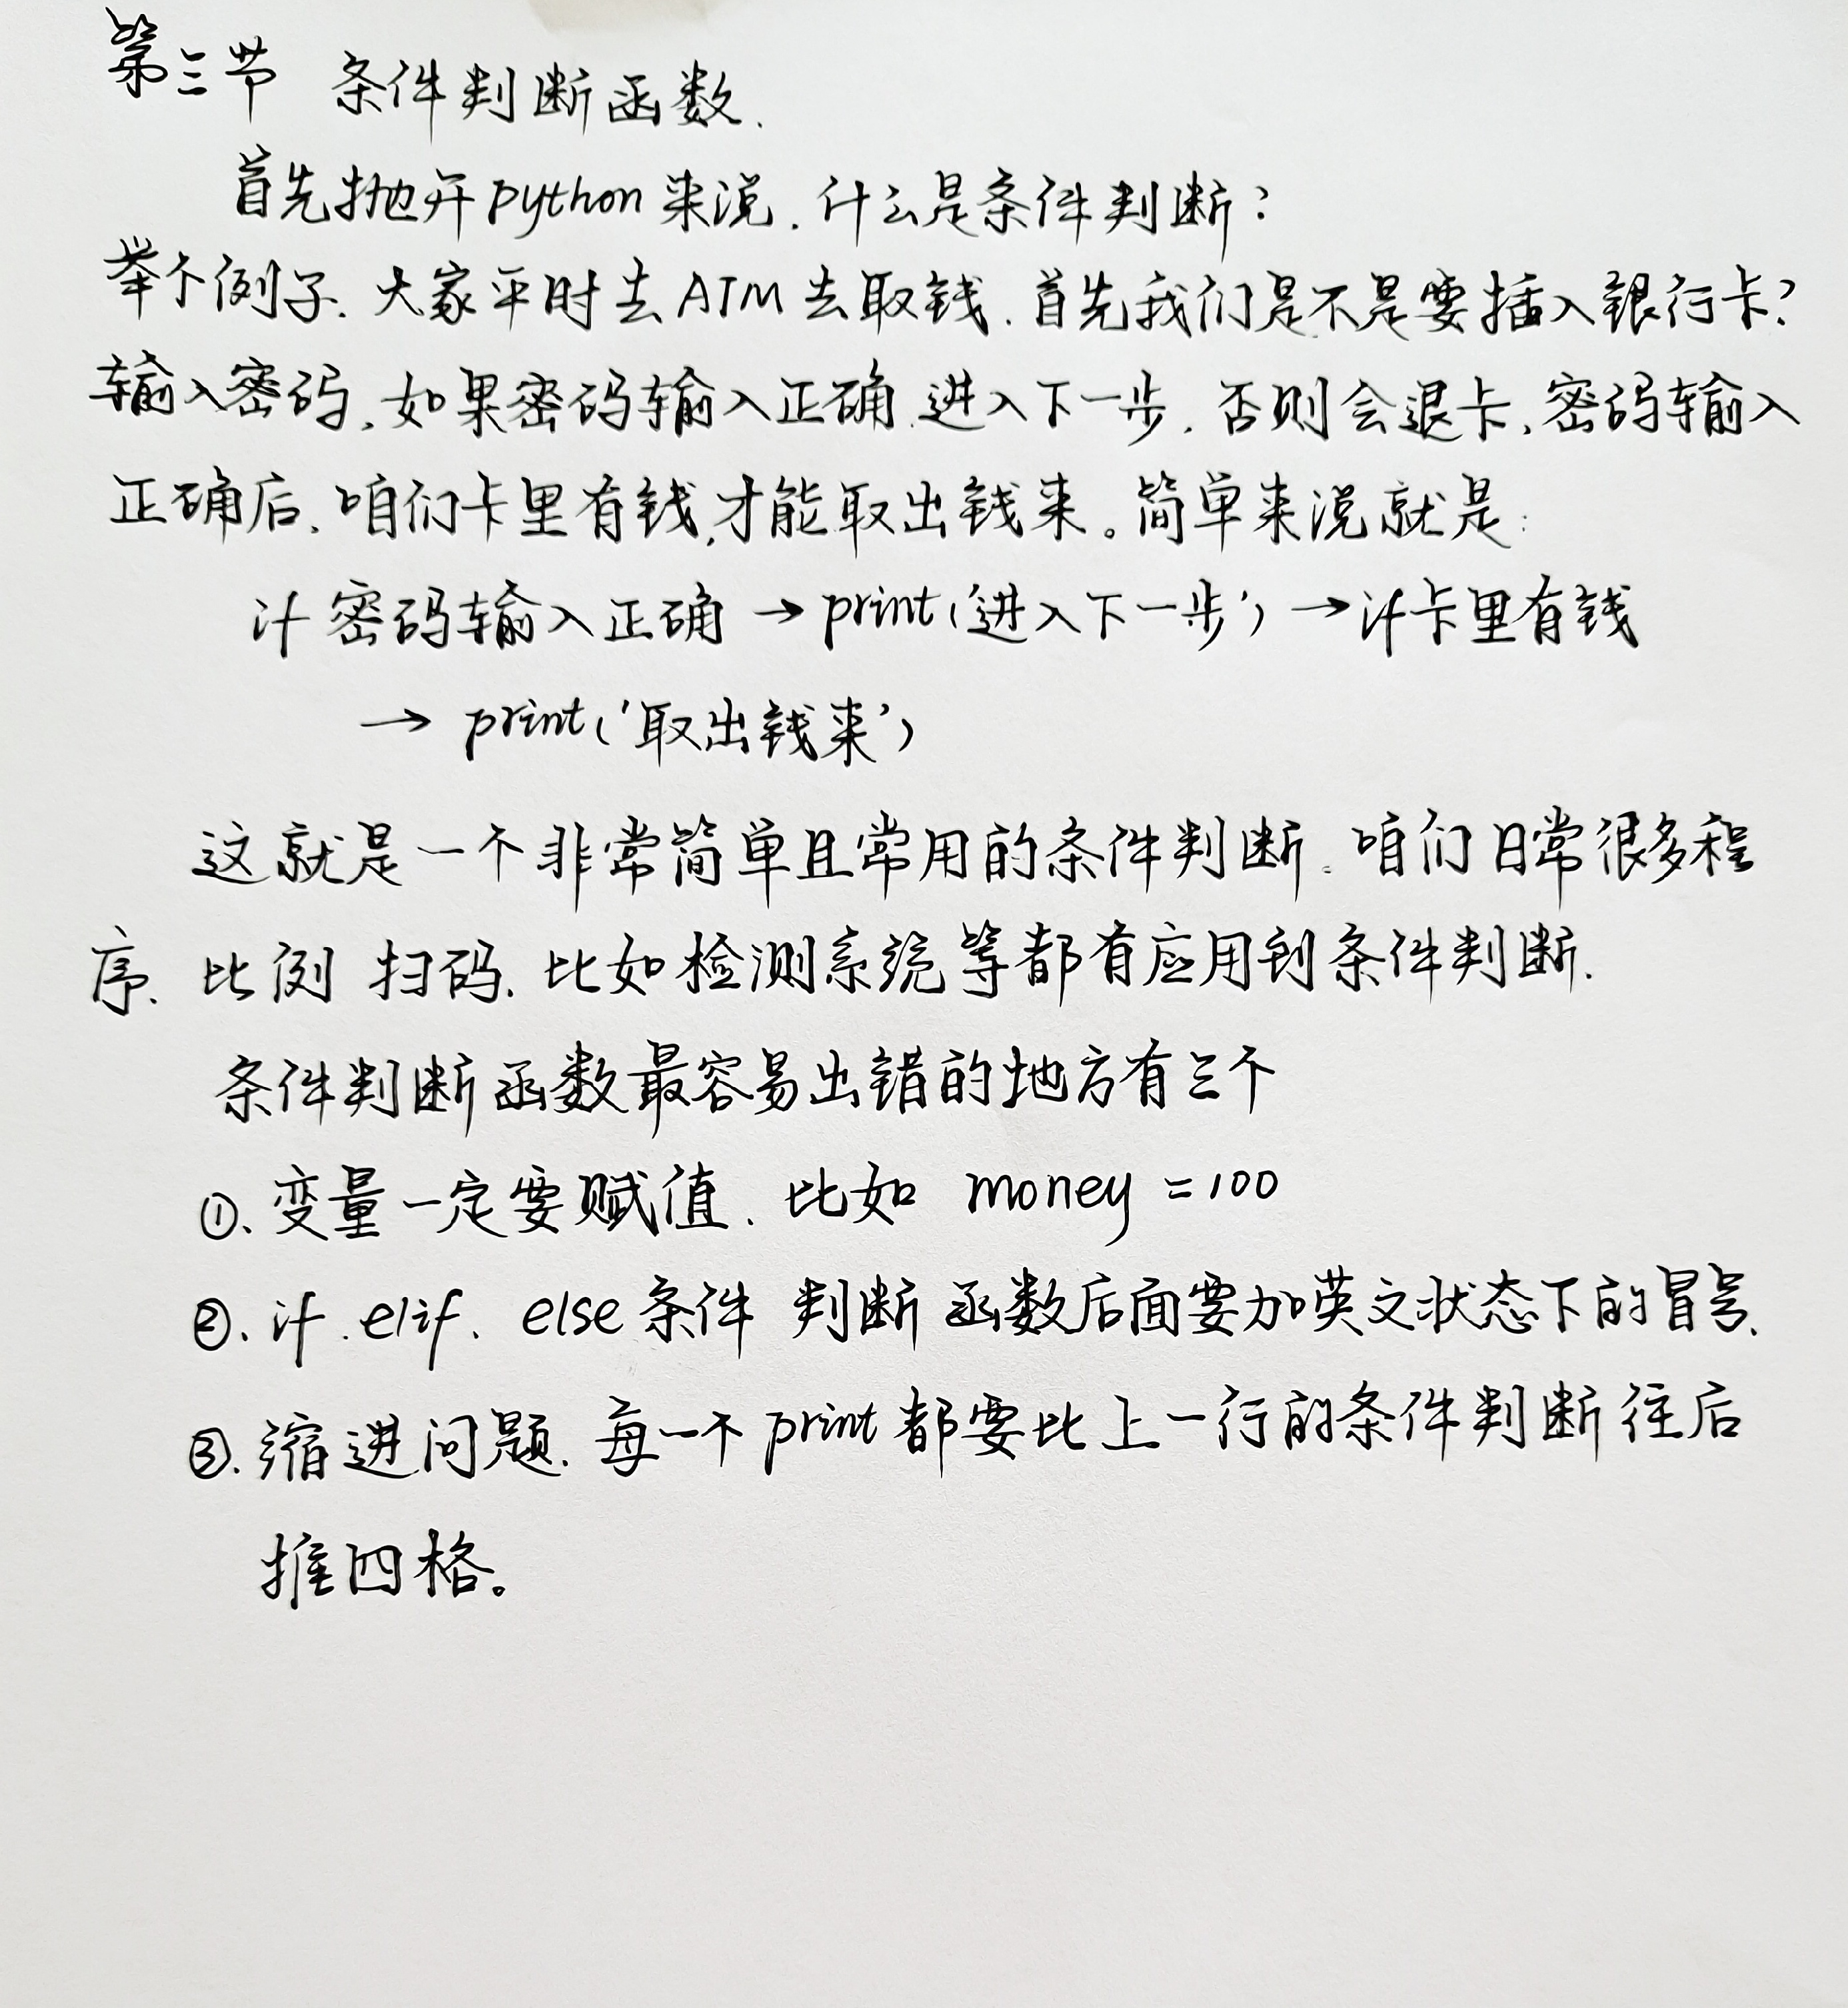 第三节 条件判断函数.
首先抛开python来说.什么是条件判断?
举个例子.大家平时去ATM去取钱.首先我们是不是要插入银行卡?
输入密码,如果密码输入正确.进入下一步.否则会退卡,密码输入
正确后.咱们卡里有钱,才能取出钱来。简单来说就是:
if 密码输入正确 → print('进入下一步') → if卡里有钱
→ print('取出钱来')
这就是一个非常简单且常用的条件判断.咱们日常很多程
序.比例 扫码.比如检测系统等都有应用到条件判断.
条件判断函数最容易出错的地方有三个
①、变量一定要赋值.比如 money =100
②、if.elif、else条件 判断函数后面要加英文状态下的冒号.
③.缩进问题.每一个print都要比上一行的条件判断往后
推四格。